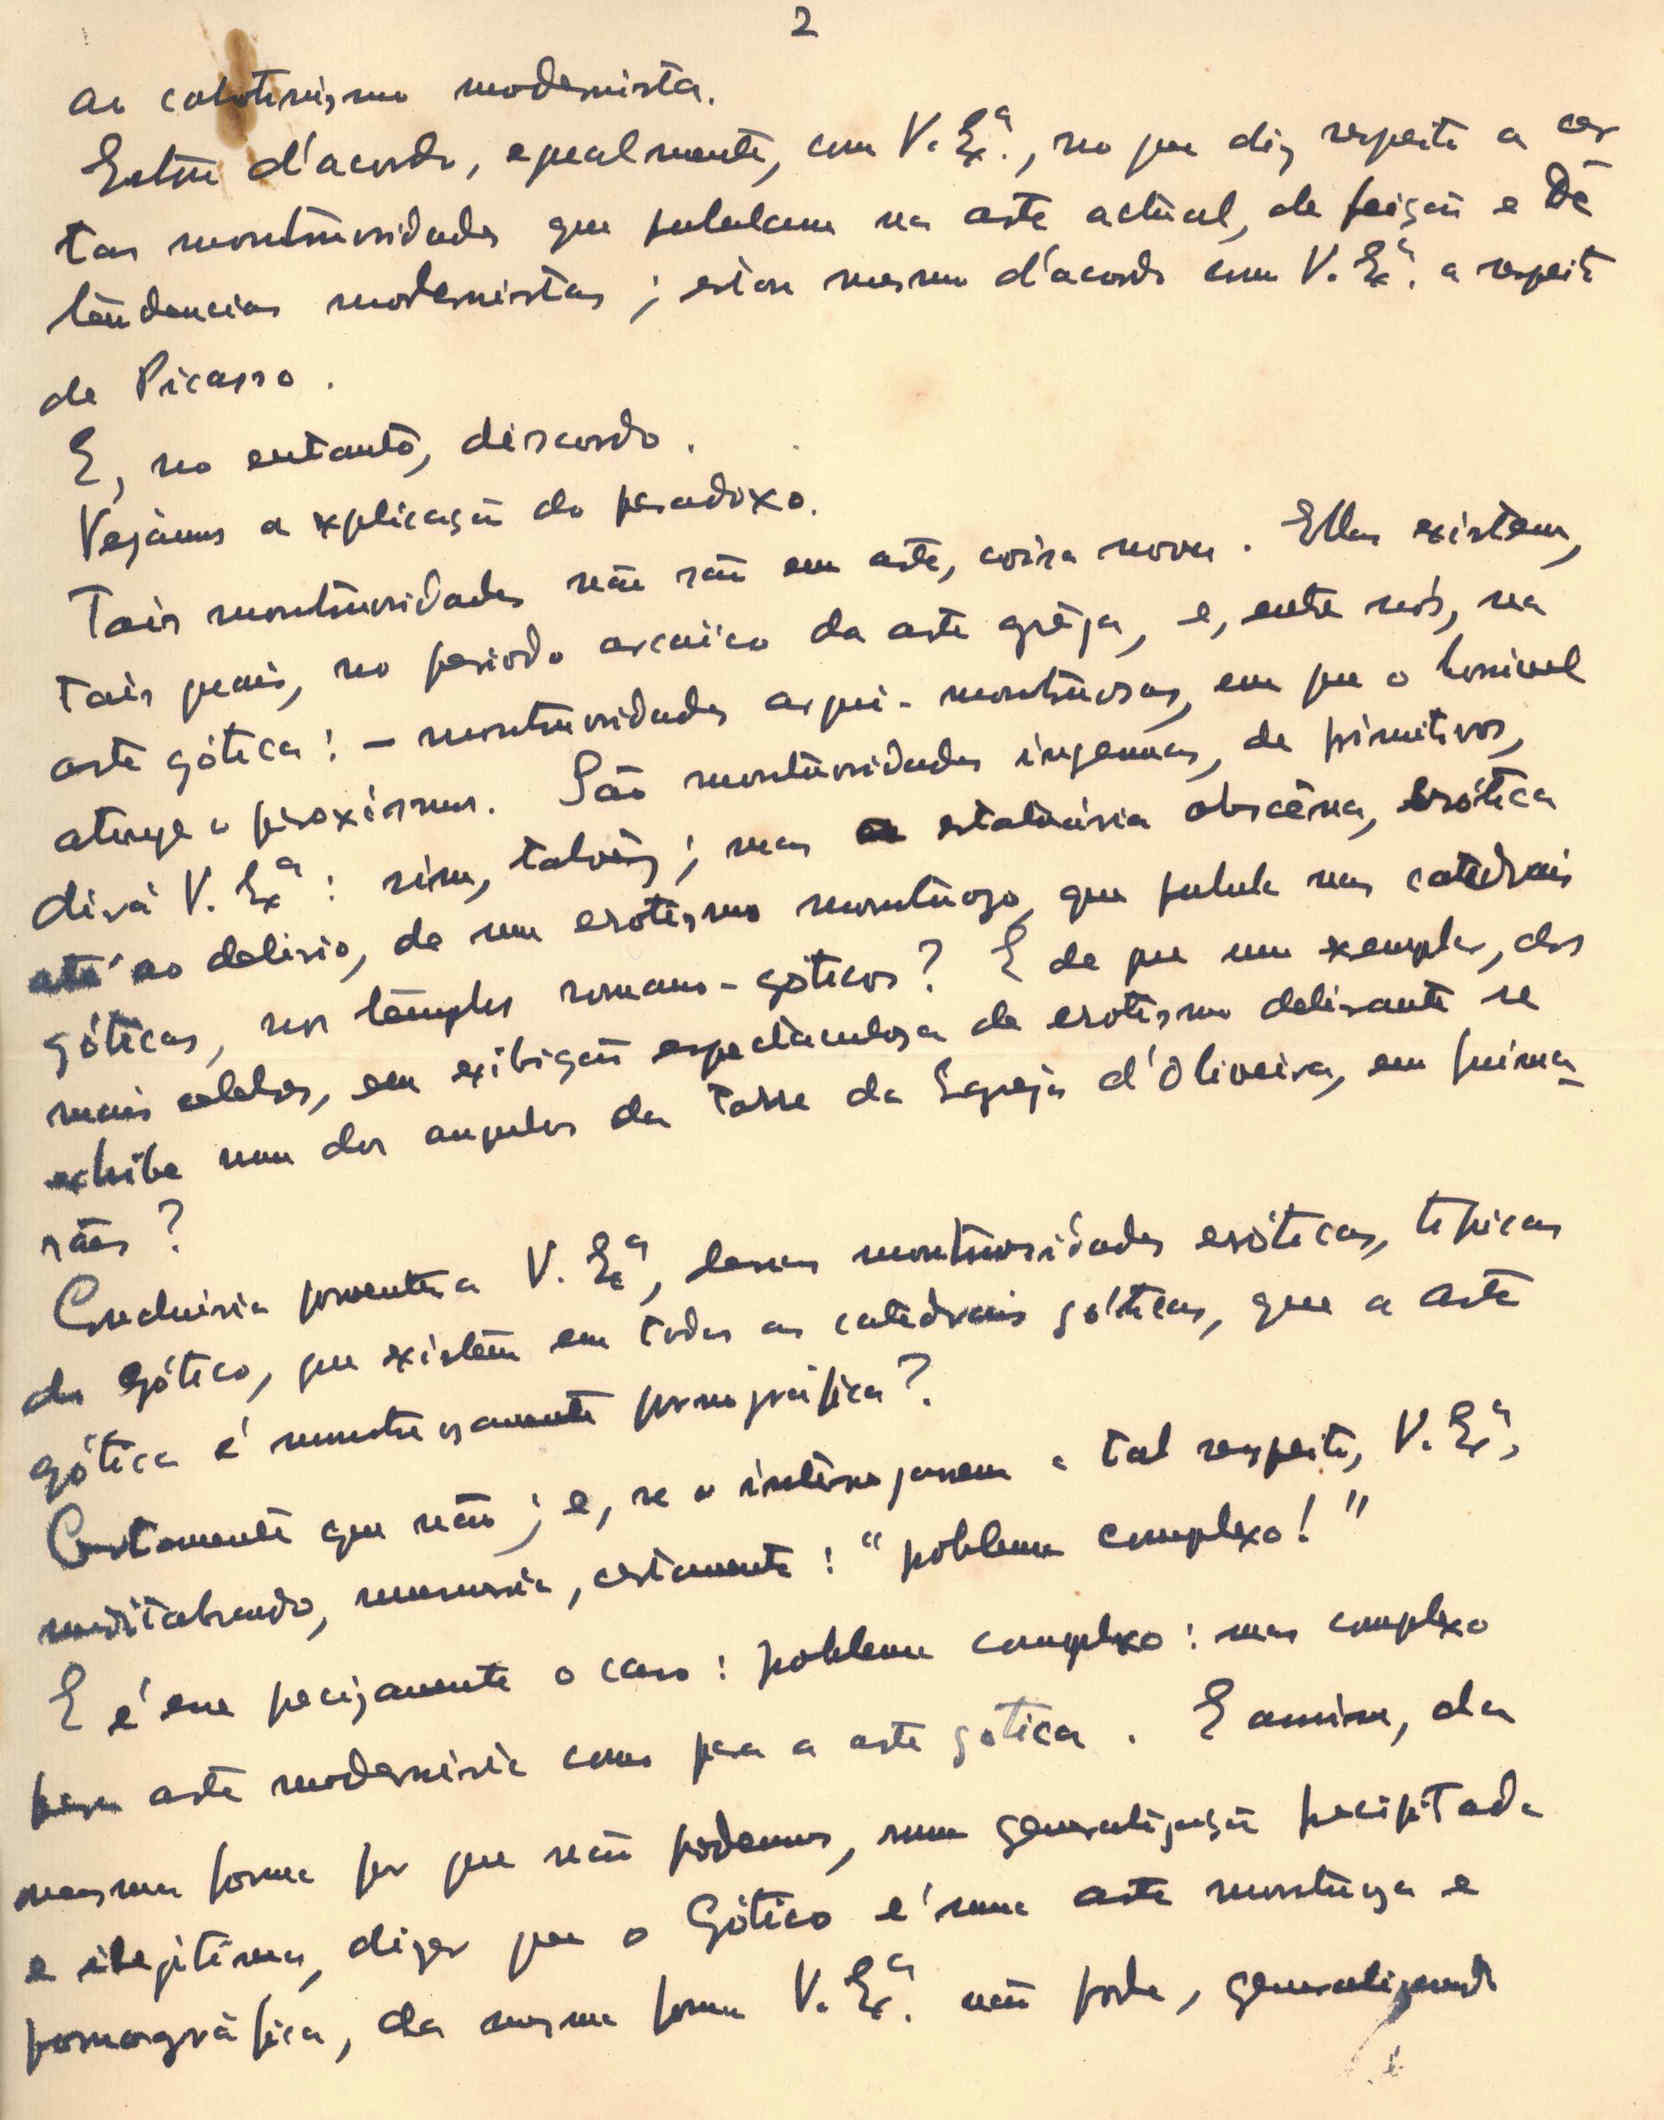 2
ao cabotinismo modernista.
Estou d'acordo, egualmente, com V. Exª., no que diz respeito a cer
tas monstruosidades que pululam na arte actual, de feição e de
tendencias modernistas; estou mesmo d'acordo com V. Exª. a respeito
de Picasso.
E, no entanto, discordo.
Vejâmos a explicação do paradoxo.
Tais monstruosidades não são em arte, coisa nova. Ellas existem,
tais quais, no periodo arcaico da arte grêga, e, entre nós, na
arte gótica: - monstruosidades arqui-monstruosas, em que o horrivel
atinge o paroxismo. São monstruosidades ingenuas, de primitivos,
dirá V. Exª: sim, talvêz; mas a estatuária obscêna, erótica
até ao delirio, de um erotismo monstruoso, que pulula nas catedrais
góticas, nos templos romano-góticos? E de que um exemplar, dos
mais celebres, em exibição espectaculosa de erotismo delirante se
exhibe num dos angulos da torre da Egreja d'Oliveira, em Guima_
rães?
Concluiria porventura V. Exª, dessas monstruosidades eróticas, tipicas
do gótico, que existem em todas as catedrais góticas, que a arte
gótica é monstruosamente pornográfica?
Certamente que não; e, se o interrogassem a tal respeito, V. Exª,
meditabundo, murmuraria, certamente: "problema complexo!"
E é esse precisamente o caso: problema complexo: mas complexo
para arte modernista como para a arte gótica. E assim, da
mesma forma por que não podemos, numa generalização precipitada
e ilegitima, dizer que o Gótico é uma arte monstruosa e
pornográfica, da mesma forma V. Exª. não pode, generalizando